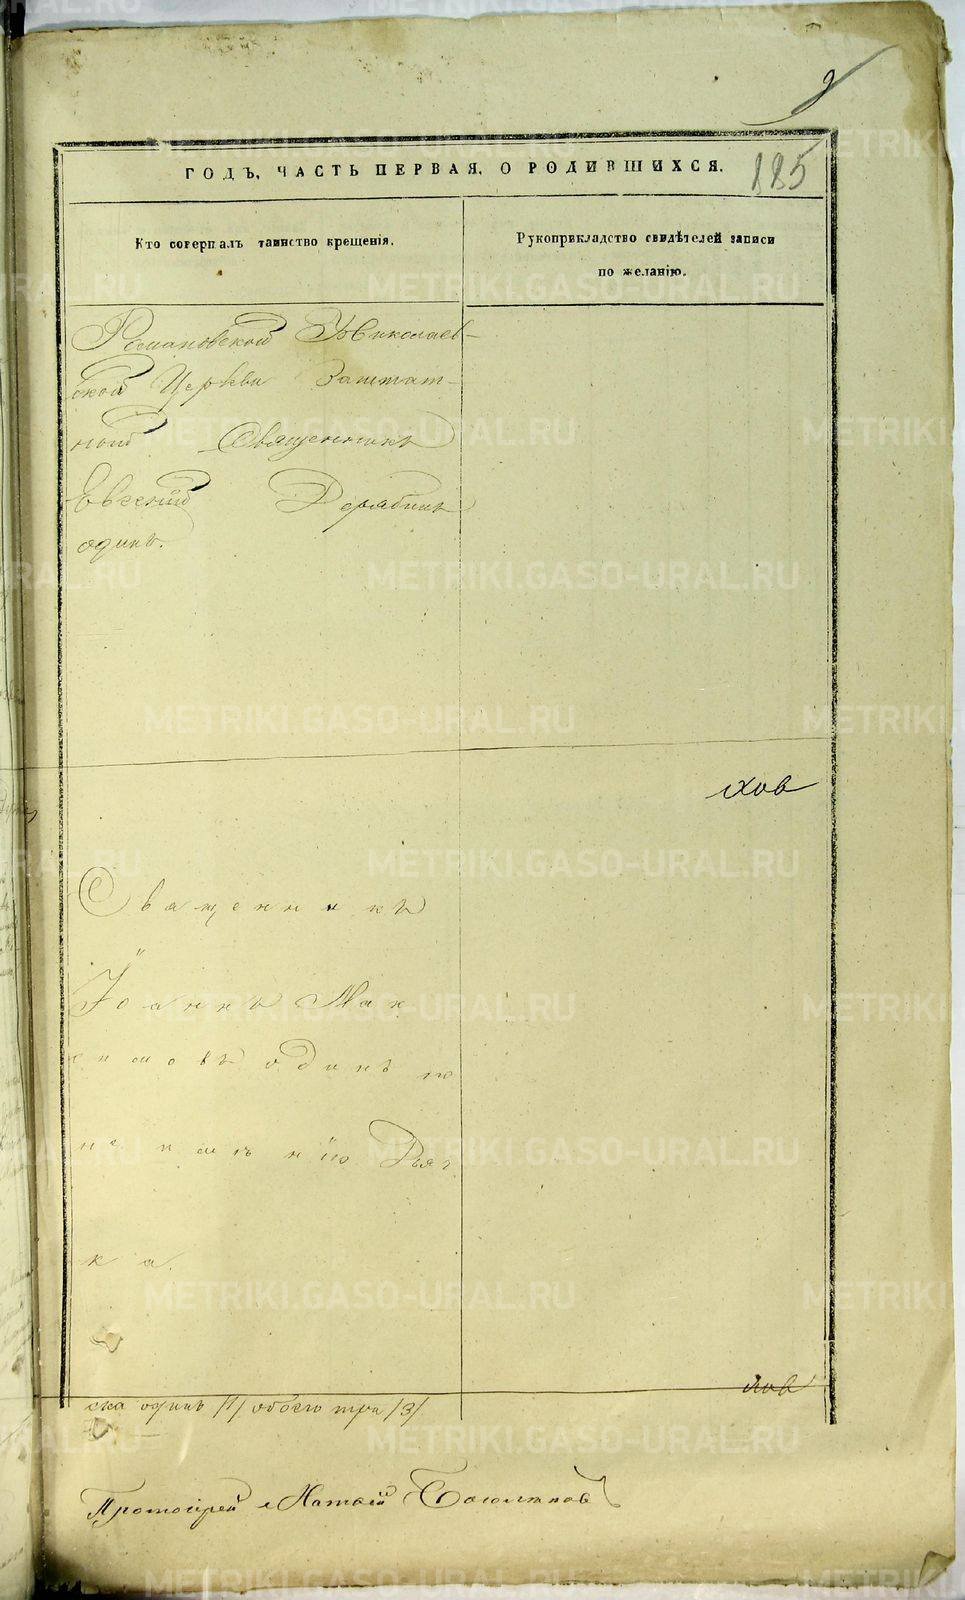 9
185
ГОДЪ, ЧАСТЬ ПЕРВАЯ, О РОДИВШИХСЯ.
Кто совершалъ таинство крещенія.
Рукоприкладство свидѣтелей записи
по желанію.
Романовской Николаев-
ской Церкви Заштат-
ный Священникъ
Евсевій Дерябинъ
одинъ.
Священникъ
Іоаннъ Мак
симовъ одинъ по
не имѣнію Дьяч
ка.
ска одинъ /1/ обоего три /3/
Протоіерей
METRIKI.GASO-URAL.RU